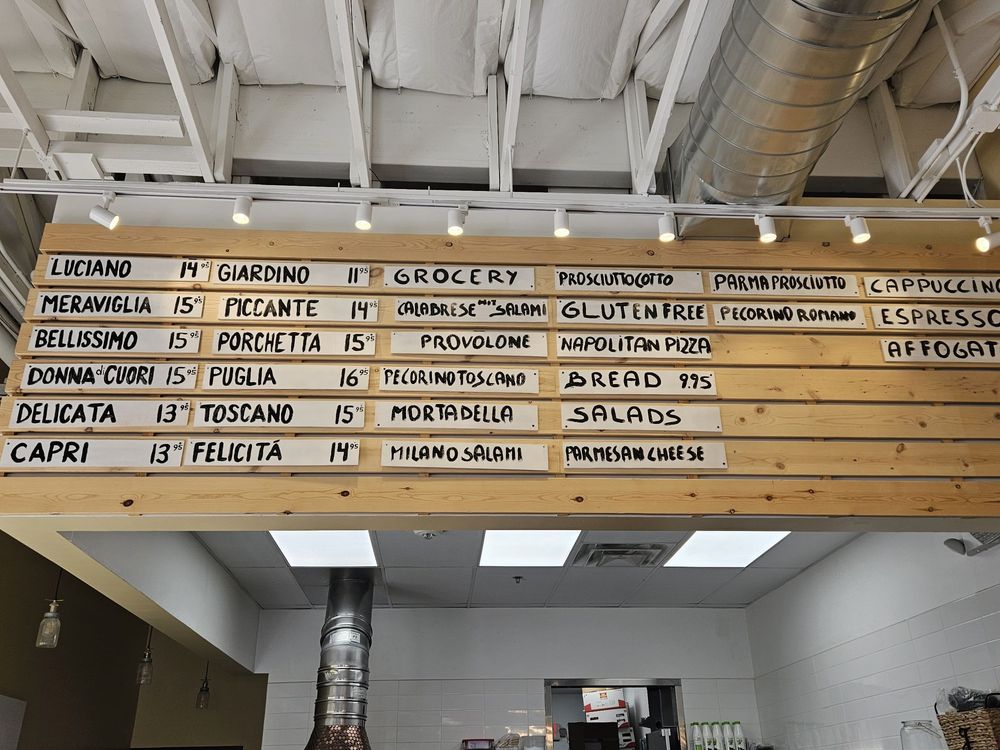 LUCIANO 14.95
MERAVIGLIA 15.95
BELLISSIMO 15.95
DONNA di CUORI 15.95
DELICATA 13.95
CAPRI 13.95
GIARDINO 11.95
PICCANTE 14.95
PORCHETTA 15.95
PUGLIA 16.95
TOSCANO 15.95
FELICITÁ 14.95
GROCERY
CALABRESE HOT SALAMI
PROVOLONE
PECORINO TOSCANO
MORTADELLA
MILANO SALAMI
PROSCIUTTO COTTO
GLUTEN FREE
NAPOLITAN PIZZA
BREAD 9.95
SALADS
PARMESAN CHEESE
PARMA PROSCIUTTO
PECORINO ROMANO
CAPPUCCINO
ESPRESSO
AFFOGAT